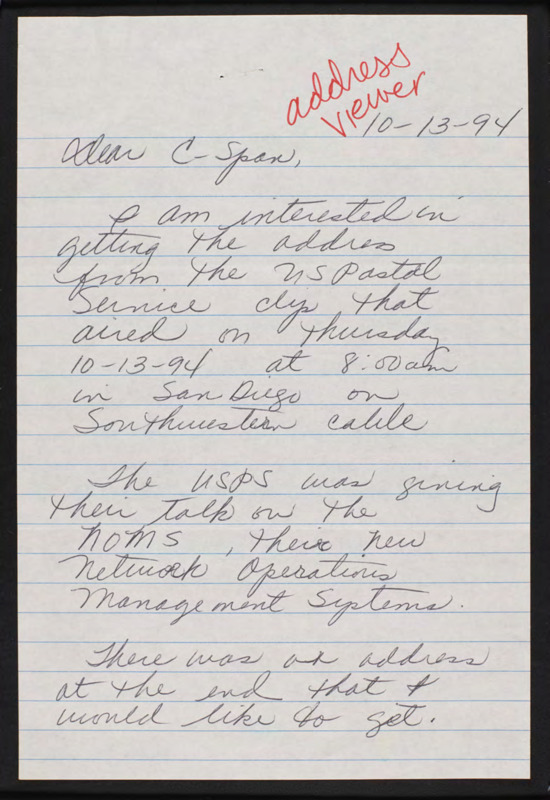 address
viewer
10-13-94
Dear C-Span,
I am interested in
getting the address
from the US Postal
Service clip that
aired on Thursday
10-13-94 at 8:00am
in San Diego on
Southwestern cable
The USPS was giving
their talk on the
NOMS, their new
Network Operations
Management Systems.
There was an address
at the end that I
would like to get.